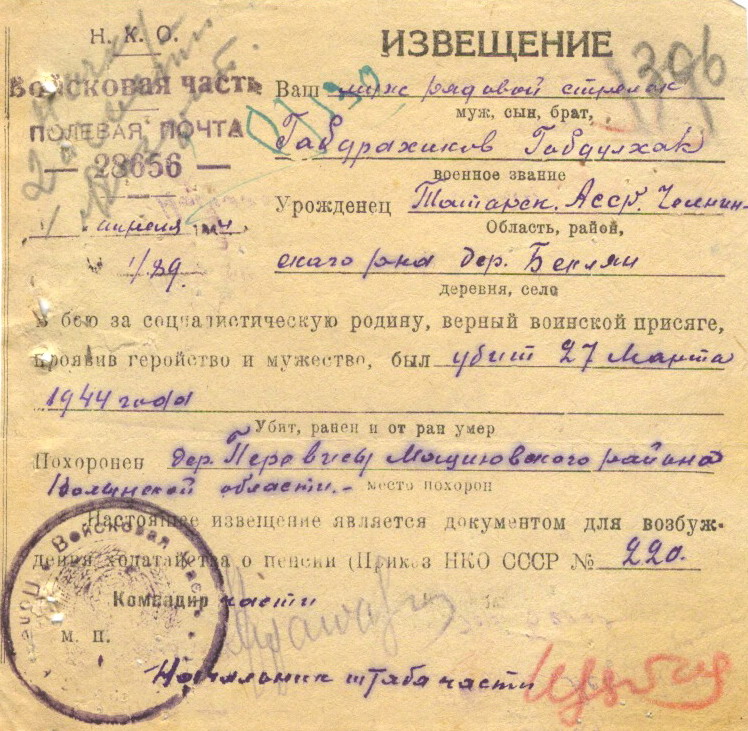 Н. К. О.
Войсковая часть
ПОЛЕВАЯ ПОЧТА
— 28656 —
апреля
1/89
ИЗВЕЩЕНИЕ
1396
Ваш муж рядовой стрелок
муж, сын, брат,
Габдрахиков Габдулхак
военное звание
Урожденец Татарск. Асср. Челнин-
Область, район,
ского рна дер. Беклян
деревня, село
В бою за социалистическую родину, верный воинской присяге,
проявив геройство и мужество, был убит 27 Марта
1944 года
Убит, ранен и от ран умер
Похоронен дер. Перевисы Мациювского района
Волынской области.-
место похорон
Настоящее извещение является документом для возбуж-
дения ходатайства о пенсии (Приказ НКО СССР № 220.
Командир части
М. П.
Войсковая часть
Начальник штаба части